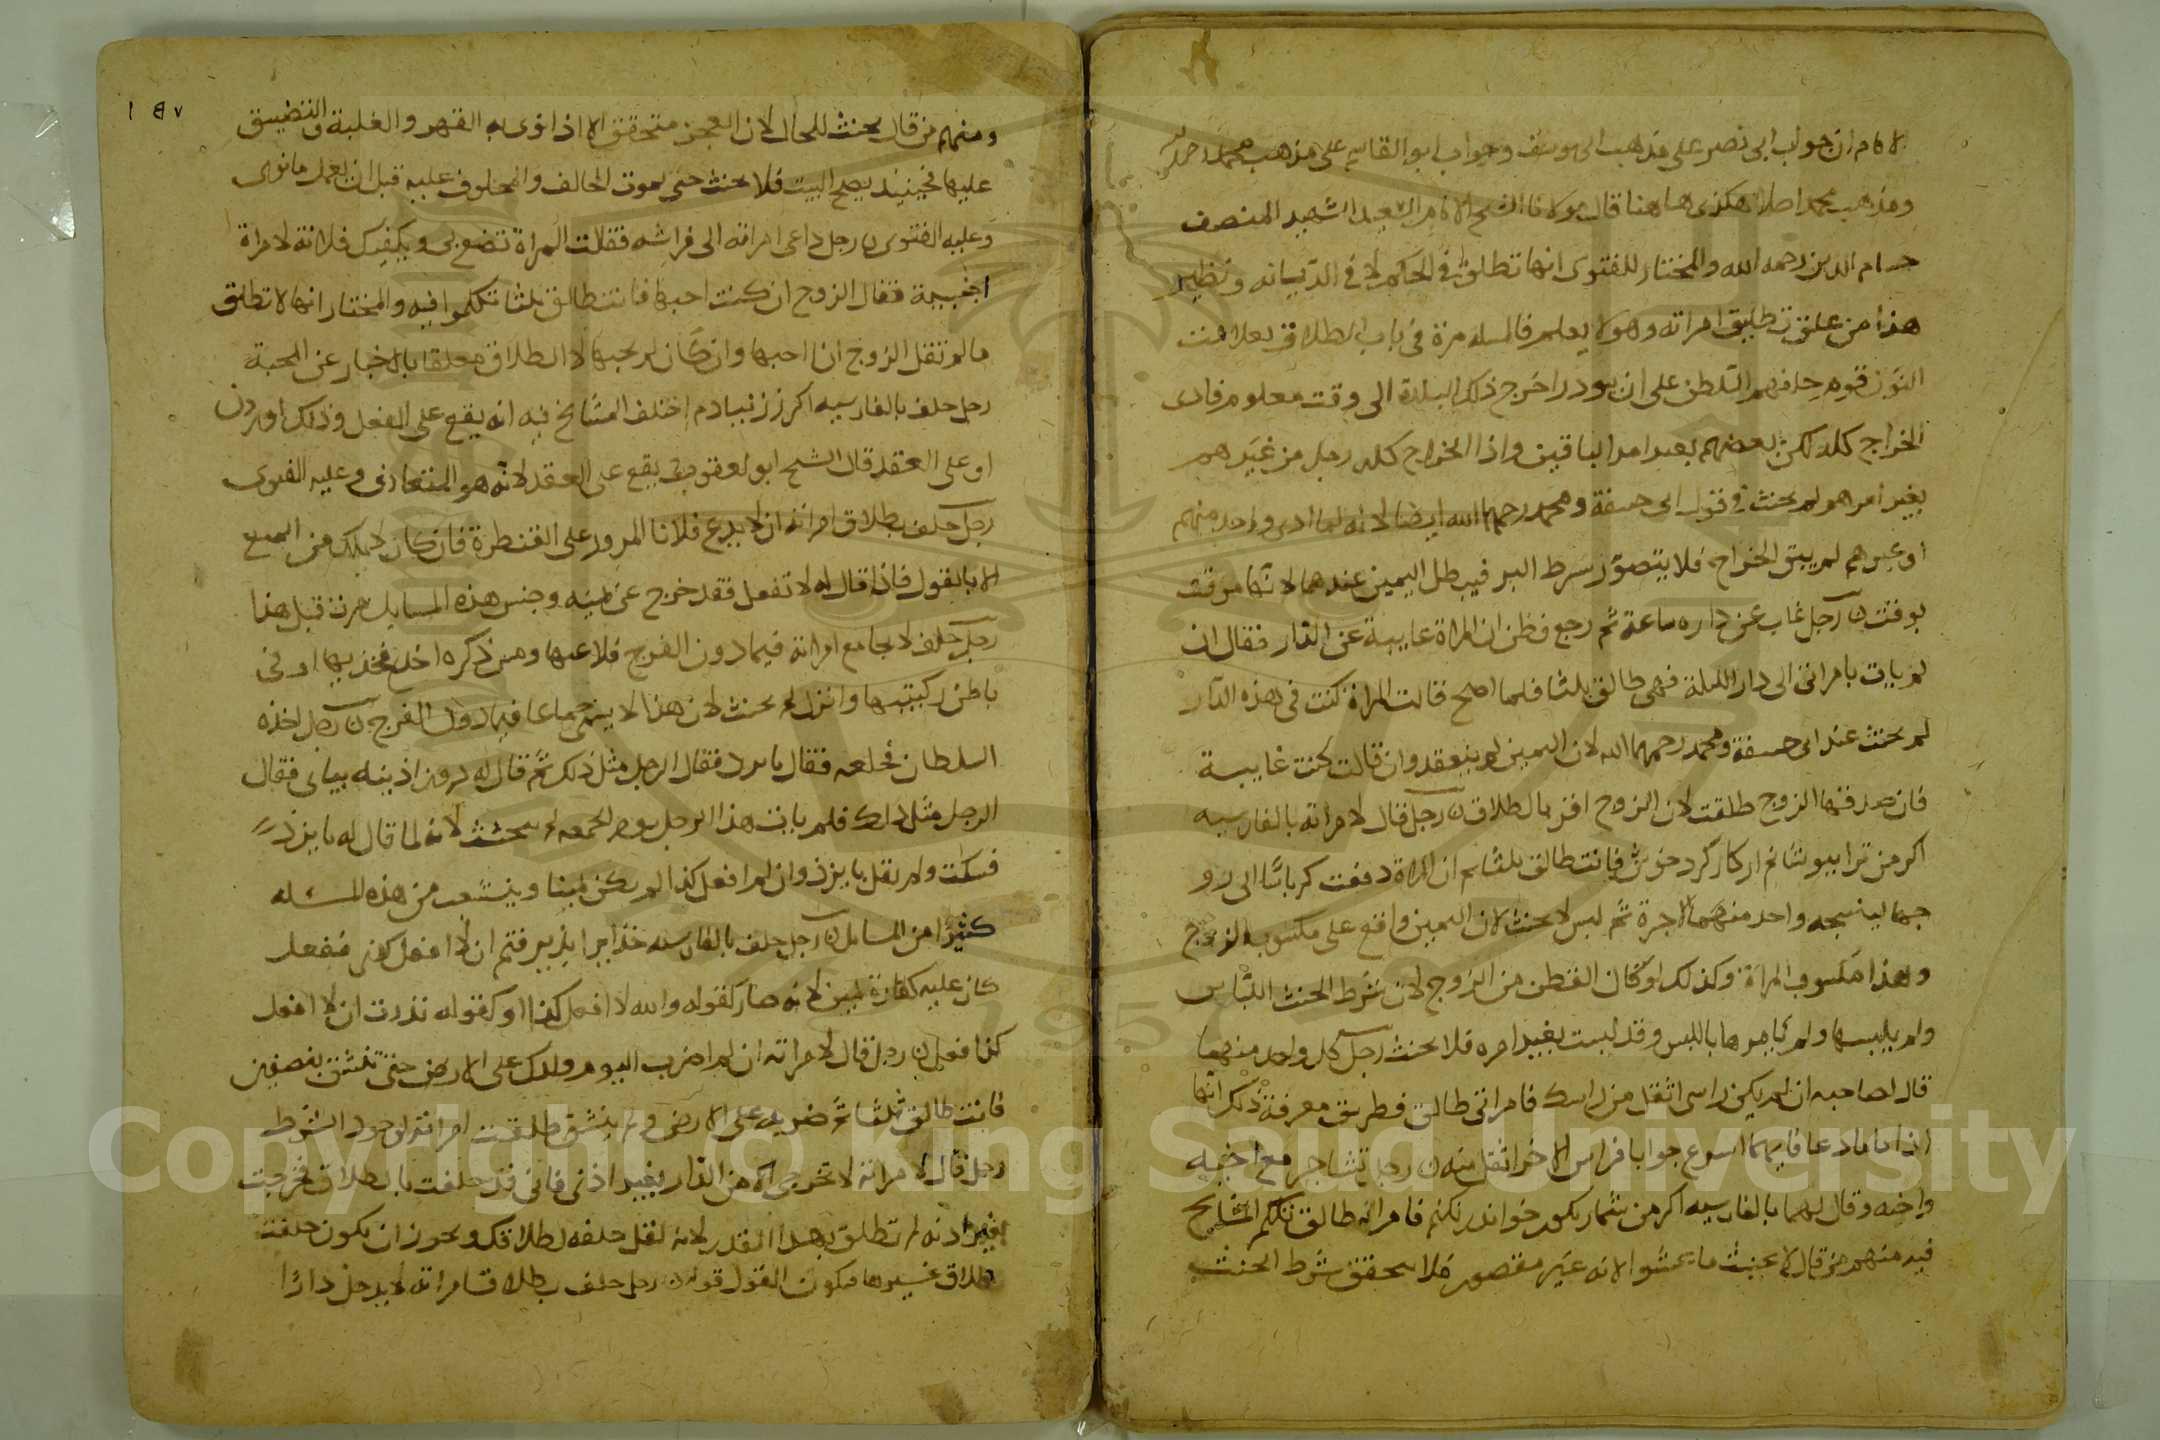 الامام ان جواب ابي نصر على مذهب ابي يوسف وجواب ابو القاسم على مذهب محمد رحمه الله
ومذهب محمد اصلا هكذى هاهنا قال مولانا الشيخ الامام السعيد الشهيد المنصف
حسام الدين رحمه الله والمختار للفتوى انها تطلق في الحكم لا في الديانه ونظير
هذا من علق تطليق امراته وهو لا يعلم فالمسله مرة في باب الطلاق بعلامت
النون قوم حلفهم السلطن على ان يودرا خرج ذلك البلدة الى وقت معلوم فادى
الخراج كله لكن بعضهم بعبر امر الباقين واذا الخراج كله رجل من غيرهم
بغير امرهم لم يحنث في قول ابي حنيفة ومحمد رحمهما الله ايضا لانه لما ادى واحد منهم
او غيرهم لم يبق الخراج فلا يتصور شرط البر فيبطل اليمين عندهما لانها موقت
بوقت ن رجل غاب عن داره ساعة ثم رجع فظن ان المراة غايبة عن الدار فقال ان
لم يات بامراتى الى دار الليلة فهى طالق ثلثا فلما اصبح قالت المراة كنت في هذه الدار
لم يحنث عند ابي حنيفة ومحمد رحمهما الله لان اليمين لم ينعقد وان قالت كنت غايبة
فان صدقها الزوج طلقت لان الزوج اقر بالطلاق ن رجل قال لامراته بالفارسيه
اكر من ترا بپوشانم از كار كرد خوش فانت طالق ثلثا ثم ان المراة دفعت كرباسا الى
واحد منهما لاجرة ثم لبس لا يحنث لان اليمين واقع على مكسوب الزوج
وهذا مكسوب المراة وكذلك لو كان القطن من الزوج لان شرط الحنث اللباس
ولم يلبسها ولم يامرها باللبس وقد لبست بغير امره فلا يحنث رجل كل واحد منهما
قال لصاحبه ان لم يكن راسى اثقل من راسك فامراتى طالق فطريق معرفة ذكر انها
اذا ناما دعا فايهما اسرع جوابا فراس الاخر اثقل منه ن رجل تشاجر مع اخيه
واخته وقال لهما بالفارسيه اكر من شمار بكور خواندر نكنم فامراته طالق تكلم المشايخ
فيه منهم من قال لا يحنث ما يحشوا لانه غير مقصور فلا يتحقق شرط الحنث
١٤٧
ومنهم من قال يحنث للحال لان العجز متحقق الا اذا نوى به القهر والغلبة والتضييق
عليها فحينيذ يصح البيت فلا يحنث حتى يموت الحالف والمحلوف عليه قبل ان يعمل ما نوى
وعليه الفتوى ن رجل داعى امراته الى فراشه فقالت المراة تضع بى ويكفيك فلانة لامراة
اجنبية فقال الزوج ان كنت احبها فانت طالق ثلثا تكلموا فيه والمختار انها لا تطلق
ما لم تقل الزوج انا احبها وان كان لم يحبها لا الطلاق معلقا بالاخبار عن المحبة
رجل حلف بالفارسيه اكر زن بيادم اختلف المشايخ فيه انه يقع على الفعل وذلك
او على العقد قال الشيخ ابو يعقوب يقع على العقد لانه هو المتعارف وعليه الفتوى
رجل حلف بطلاق امراته ان لا يدع فلانا المرور على القنطرة فان كان لا يملك من المنع
الا بالقول فاذا قال له لا تفعل فقد خرج عن يمينه وجنس هذه المسايل مرت قبل هذا
رجل حلف لا يجامع امراته فيما دون الفرج فلاعبها ومس ذكره اخل فخذيها او في
باطن ركبتيها وانزل لم يحنث لان هذا لا يسمى جماعا فيما دون الفرج ن رجل اخذه
السلطان فحلعه فقال بايزد فقال الرجل مثل ذلك ثم قال له بيايى فقال
الرجل مثل ذلك فلم يات هذا الرجل يوم الجمعه لم يحنث لانه لما قال له بايزد
فسكت ولم يقل بايزد وان لم افعل كذا لم يكن يمينا وينشعب من هذه المسله
كثيرا من المسايل ن رجل حلف بالفارسيه خذايرا پذيرفتم ان لا افعل كذى ففعل
كان عليه كفارة يمين لانه صار كقوله والله لا افعل كذا او كقوله نذرت ان لا افعل
كذا ففعل ن رجل قال لامراته ان لم اضرب اليوم ولدك على الارض حتى تنشق بنصفين
فانت طالق ثلثا ثم ضربه على الارض ولم ينشق طلقت امراته لوجود الشرط
رجل قال لامراته لا تخرجى من الدار بغير اذنى فانى قد حلفت بالطلاق فخرجت
بغير اذنه لم تطلق بهذا القدر لانه لم يقل حلفه بطلاقك ويجوز ان يكون حلفت
بطلاق غيرها فيكون القول قوله ن رجل حلف بطلاق امراته لا يدخل دارا
Copyright © King Saud University
1957